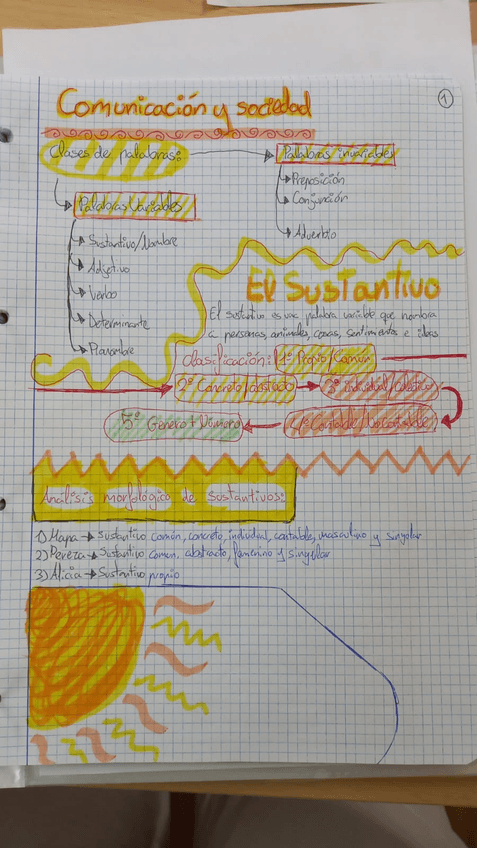 1
Comunicación y sociedad
Clases de palabras:
Palabras invariables
Preposición
Conjunción
Adverbio
Palabras Variables
Sustantivo/Nombre
Adjetivo
Verbo
Determinante
Pronombre
El Sustantivo
El sustantivo es una palabra variable que nombra
a personas, animales, cosas, sentimientos e ideas
Clasificación: 1º Propio/Común
2º Concreto/abstracto 3º Individual/colectivo
5º Género + Número 4º Contable/No contable
Análisis morfológico de sustantivos:
1) Mapa → Sustantivo común, concreto, individual, contable, masculino y singular
2) Pereza → Sustantivo común, abstracto, femenino y singular
3) Alicia → Sustantivo propio